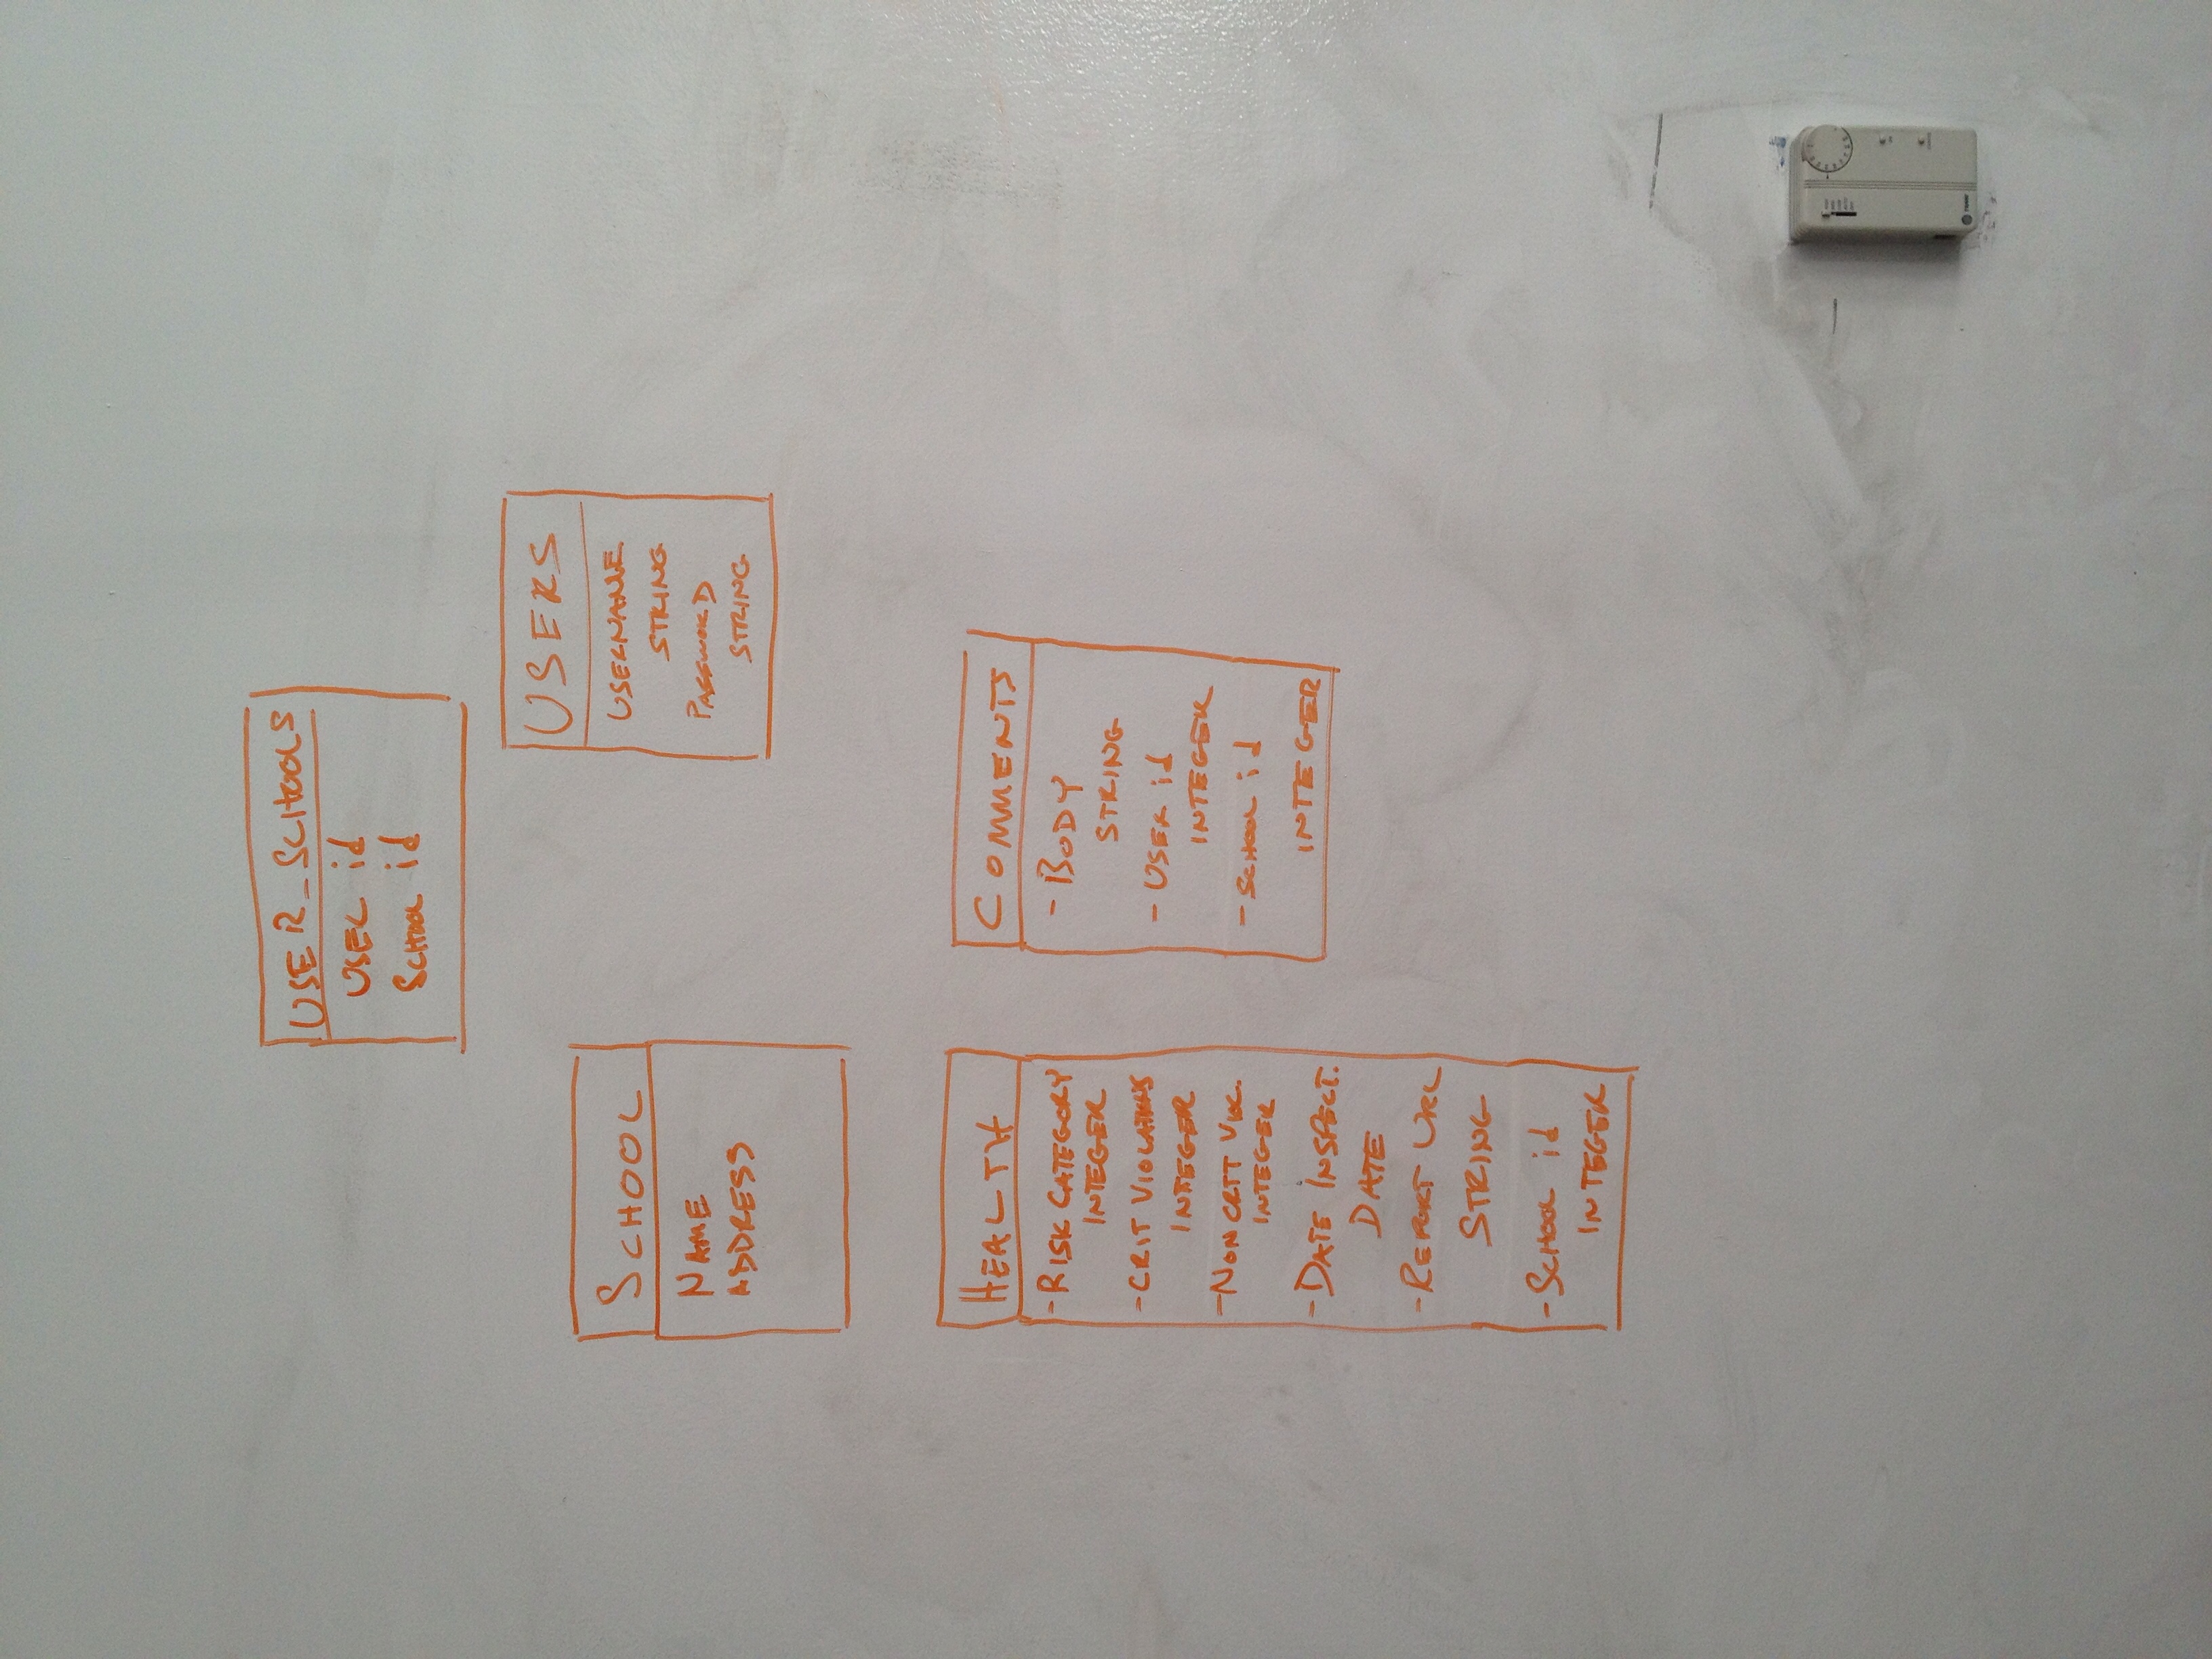 USER_SCHOOLS
USER id
SCHOOL id
USERS
USERNAME
STRING
PASSWORD
STRING
SCHOOL
NAME
ADDRESS
HEALTH
- RISK CATEGORY
INTEGER
- CRIT VIOLATIONS
INTEGER
- NON CRIT VIOL.
INTEGER
- DATE INSPECT.
DATE
- REPORT URL
STRING
- SCHOOL id
INTEGER
COMMENTS
- BODY
STRING
- USER id
INTEGER
- SCHOOL id
INTEGER